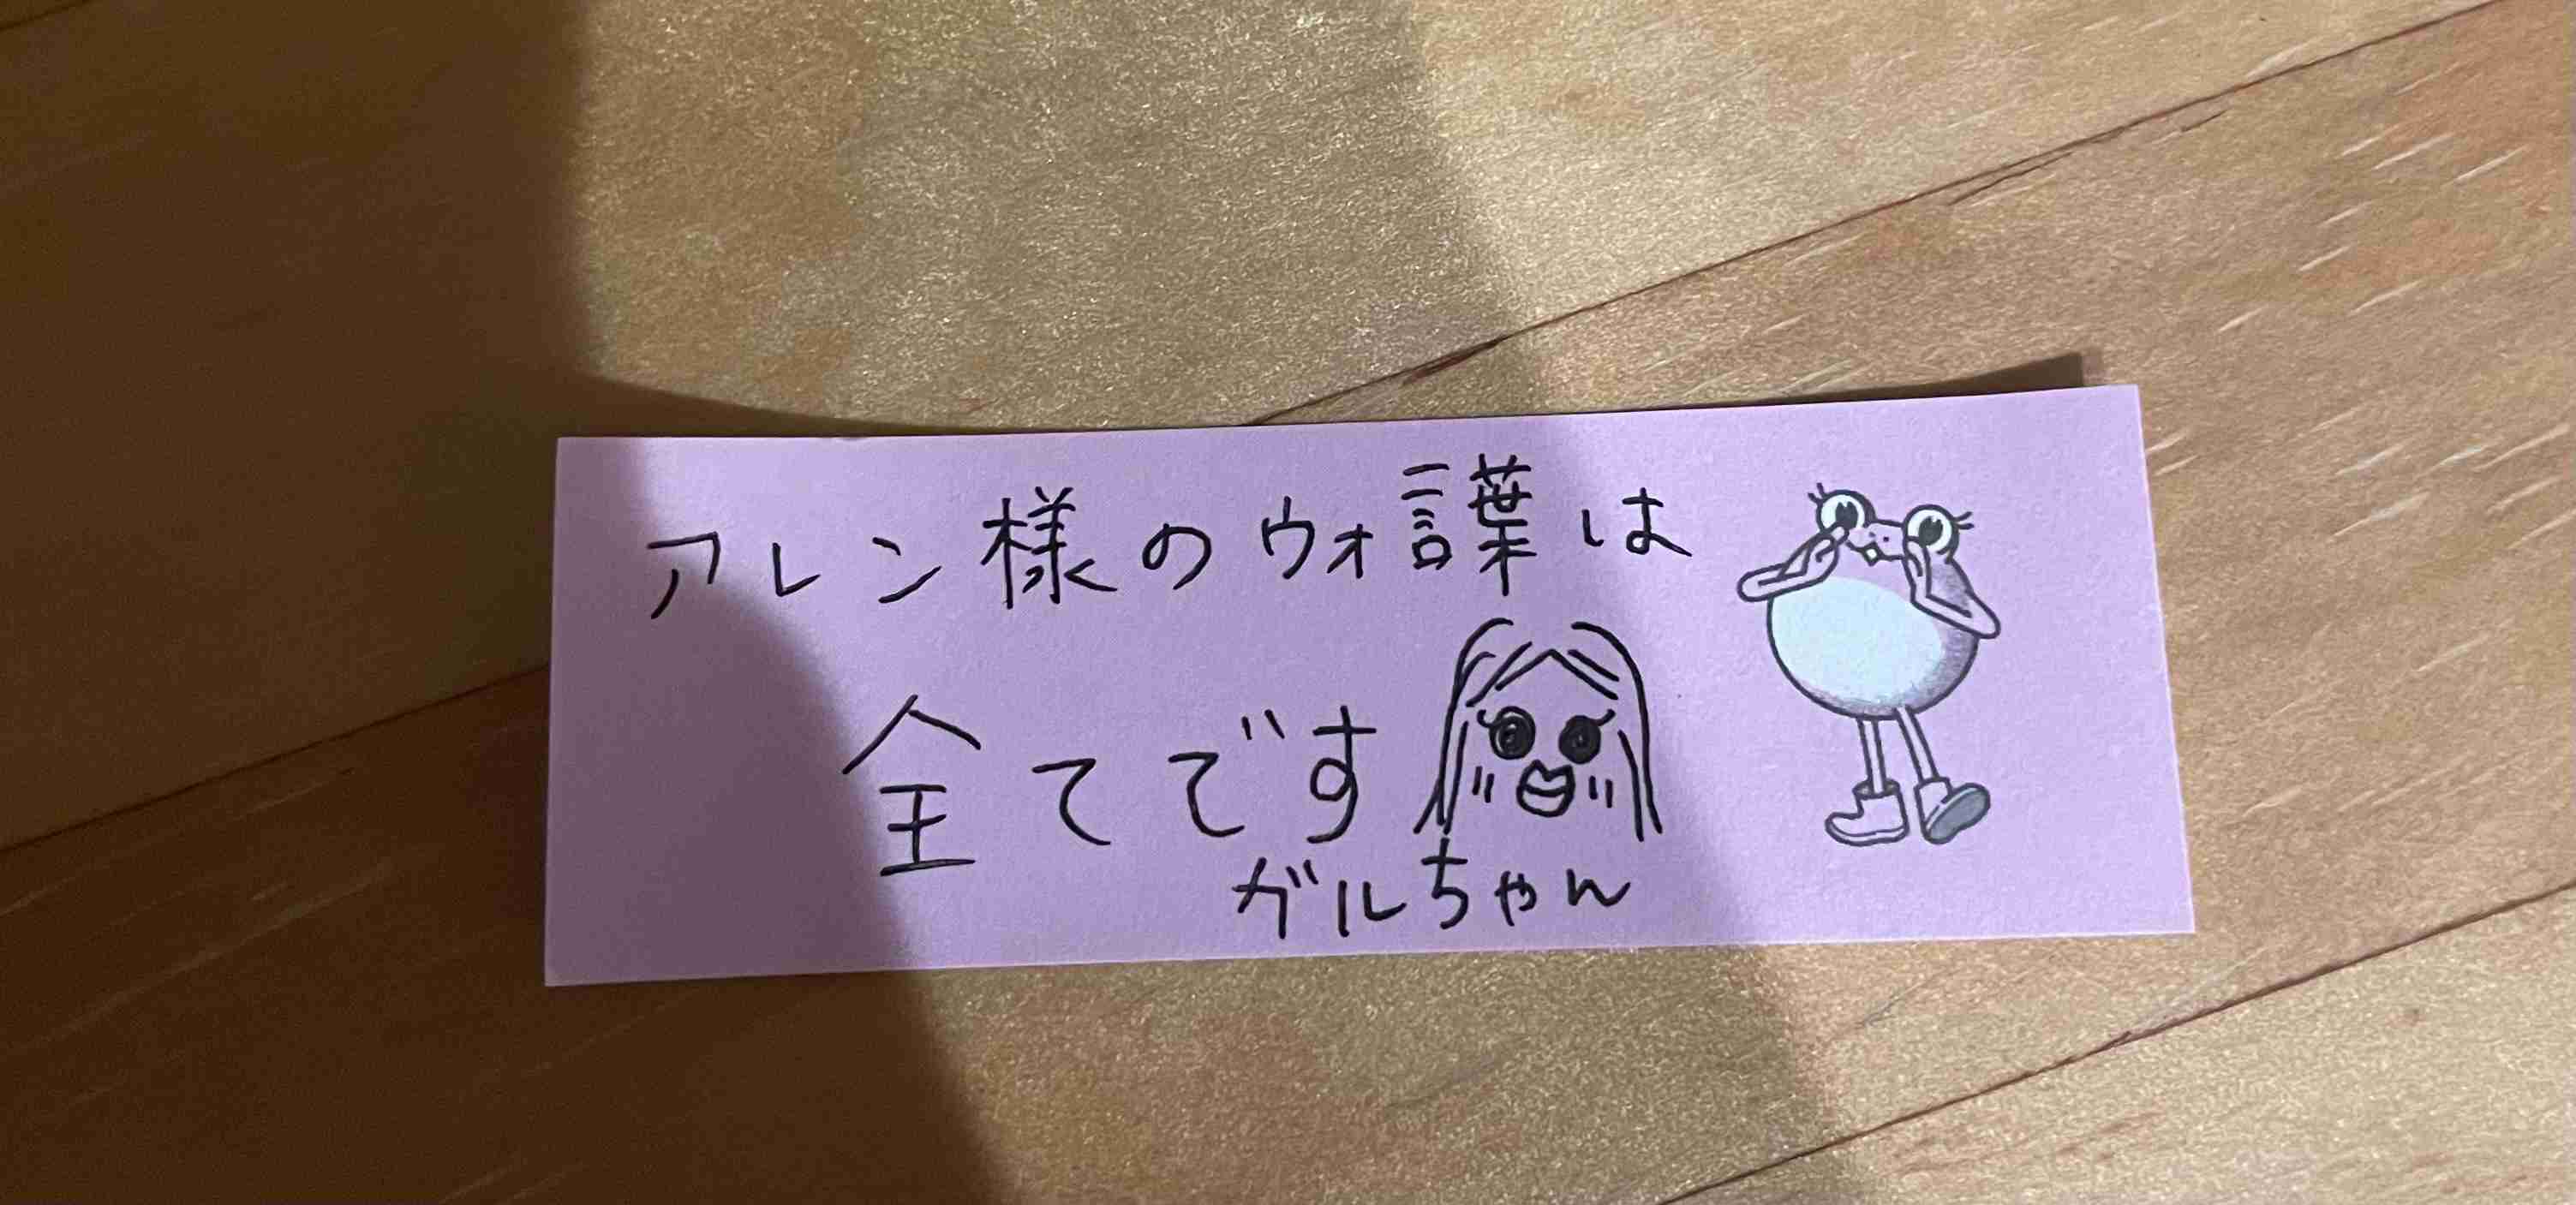 アレン様のウォ言葉は
全てです
ガルちゃん